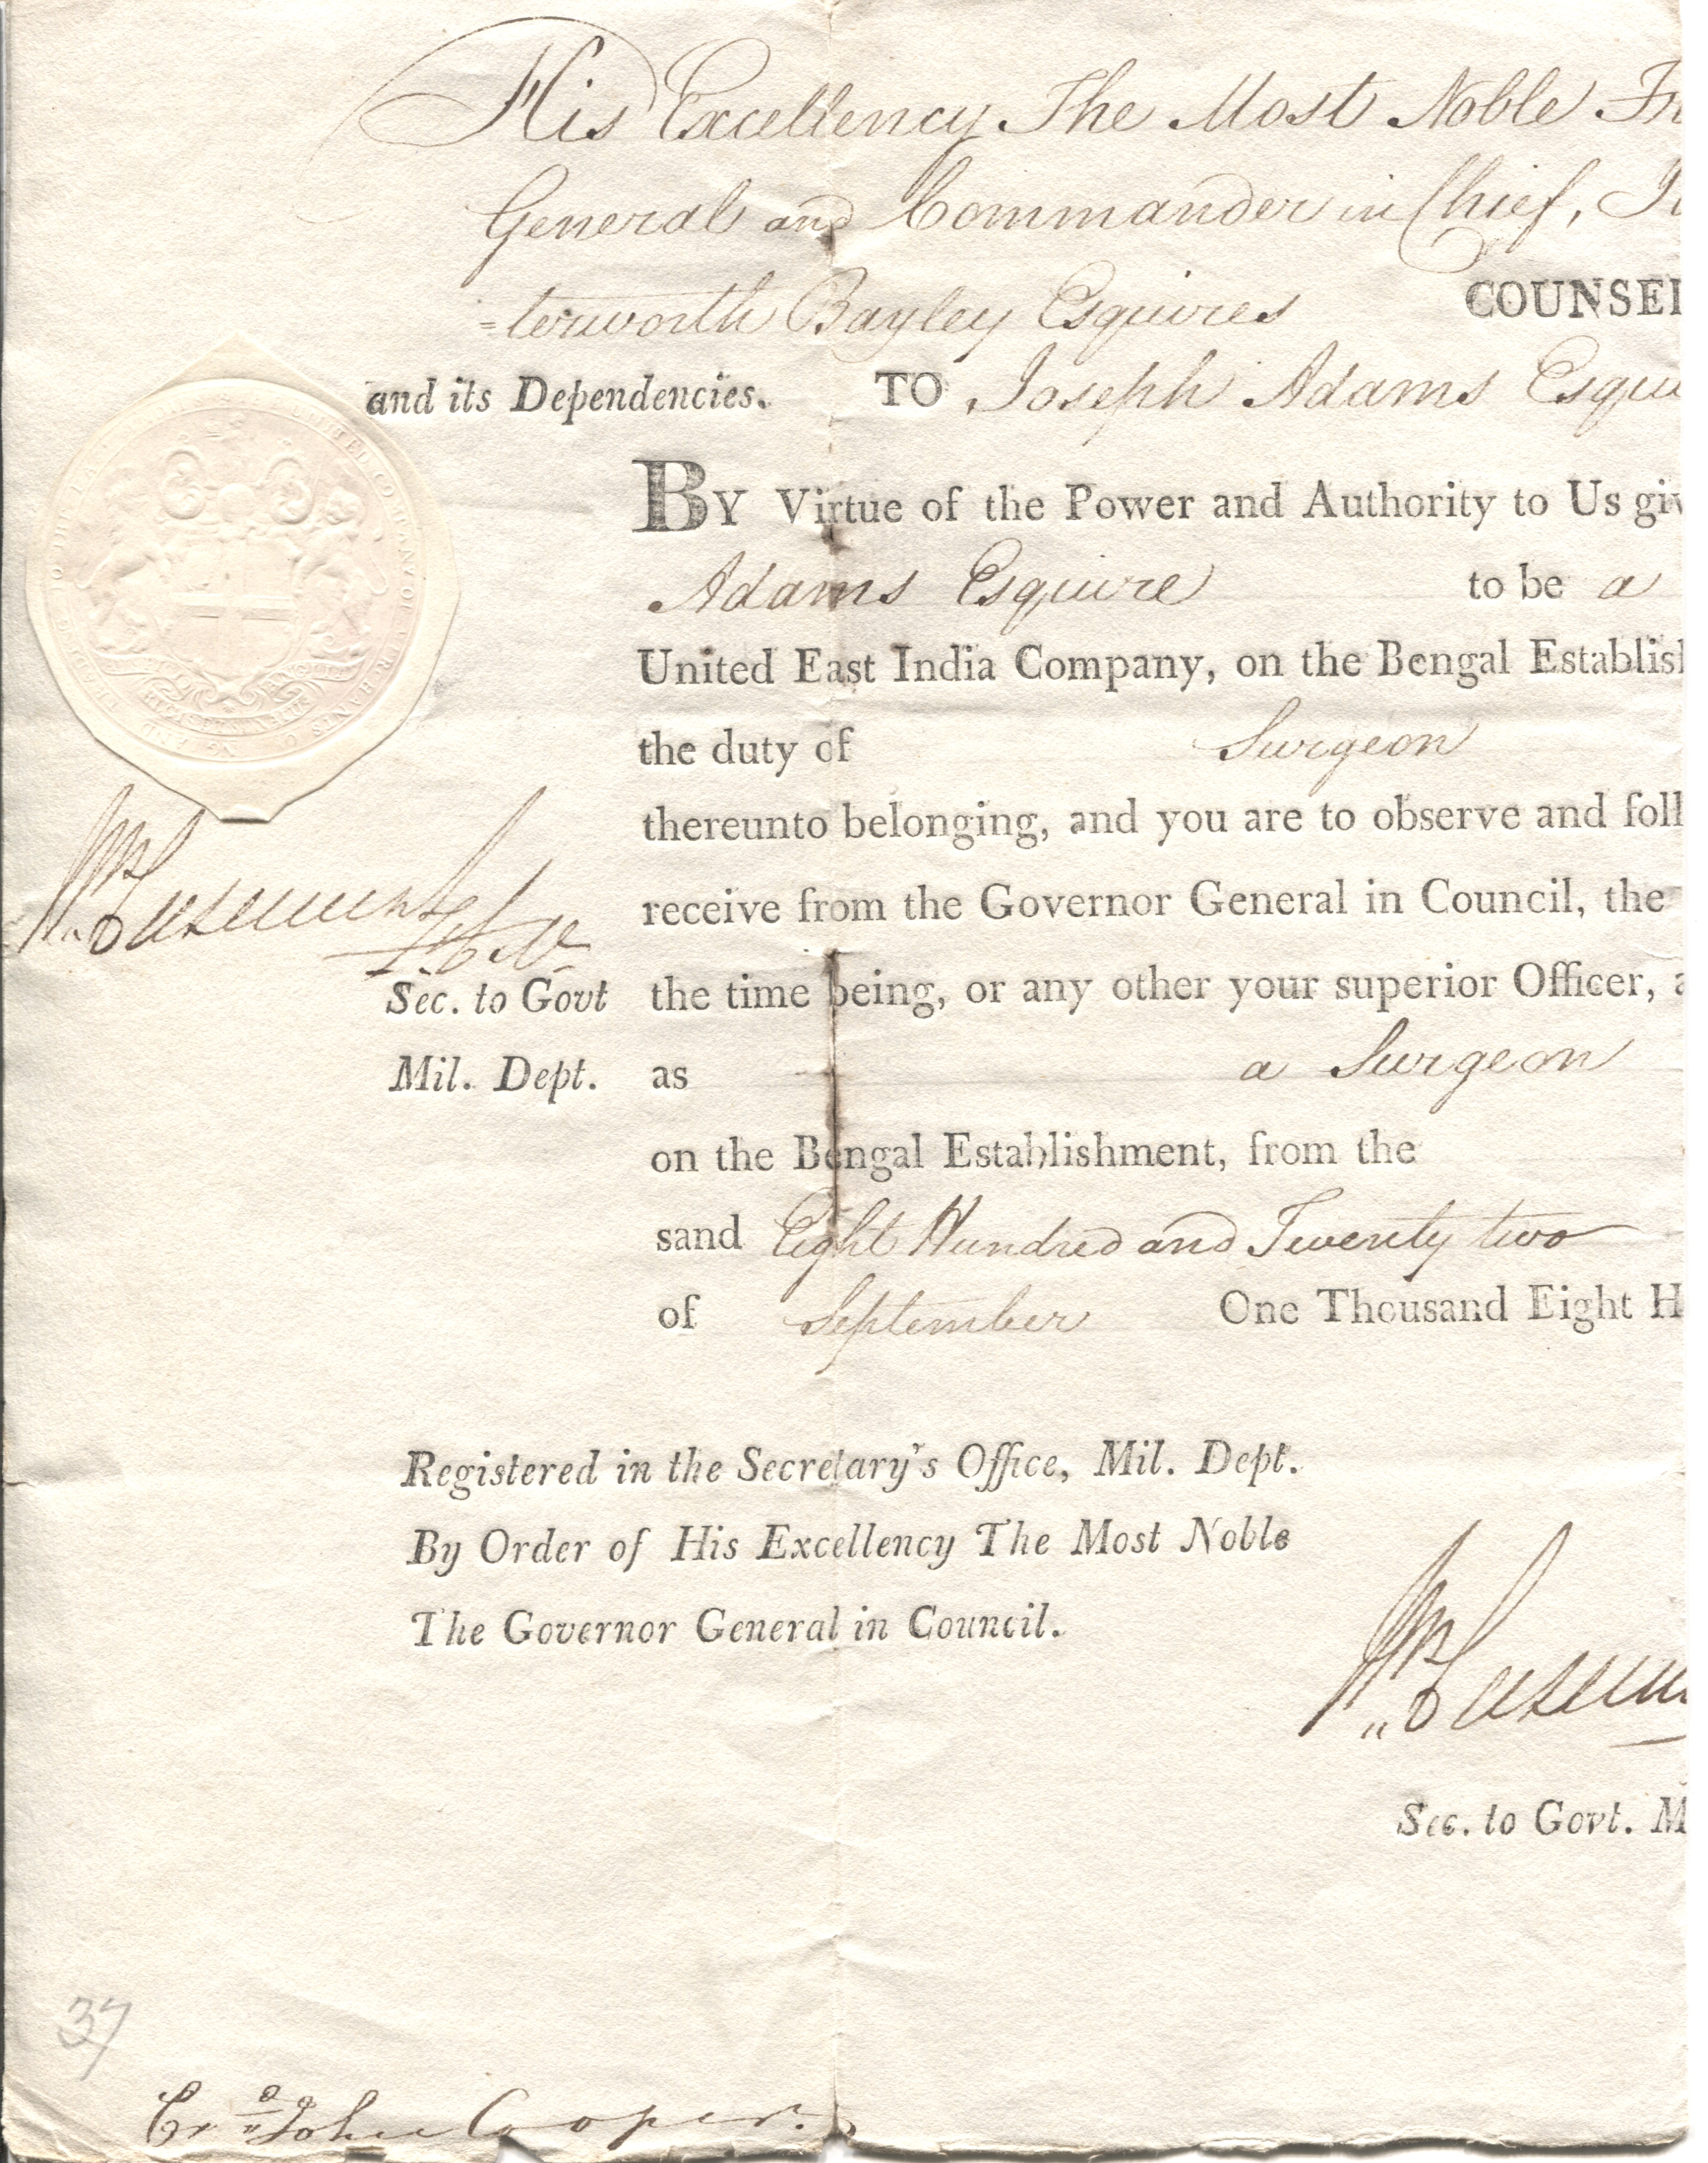 His Excellency The Most Noble Fr
General and Commander in Chief, J
=terworth Bayley Esquires COUNSEL
and its Dependencies. TO Joseph Adams Esqui
BY Virtue of the Power and Authority to Us giv
Adams Esquire to be a
United East India Company, on the Bengal Establish
the duty of Surgeon
thereunto belonging, and you are to observe and foll
receive from the Governor General in Council, the
Wm Casement
Lt Col
Sec. to Govt the time being, or any other your superior Officer, a
Mil. Dept. as a Surgeon
on the Bengal Establishment, from the
sand Eight Hundred and Twenty two
of September One Thousand Eight H
Registered in the Secretary's Office, Mil. Dept.
By Order of His Excellency The Most Noble
The Governor General in Council.
Wm Casem
Sec. to Govt. M
37
John Cooper.